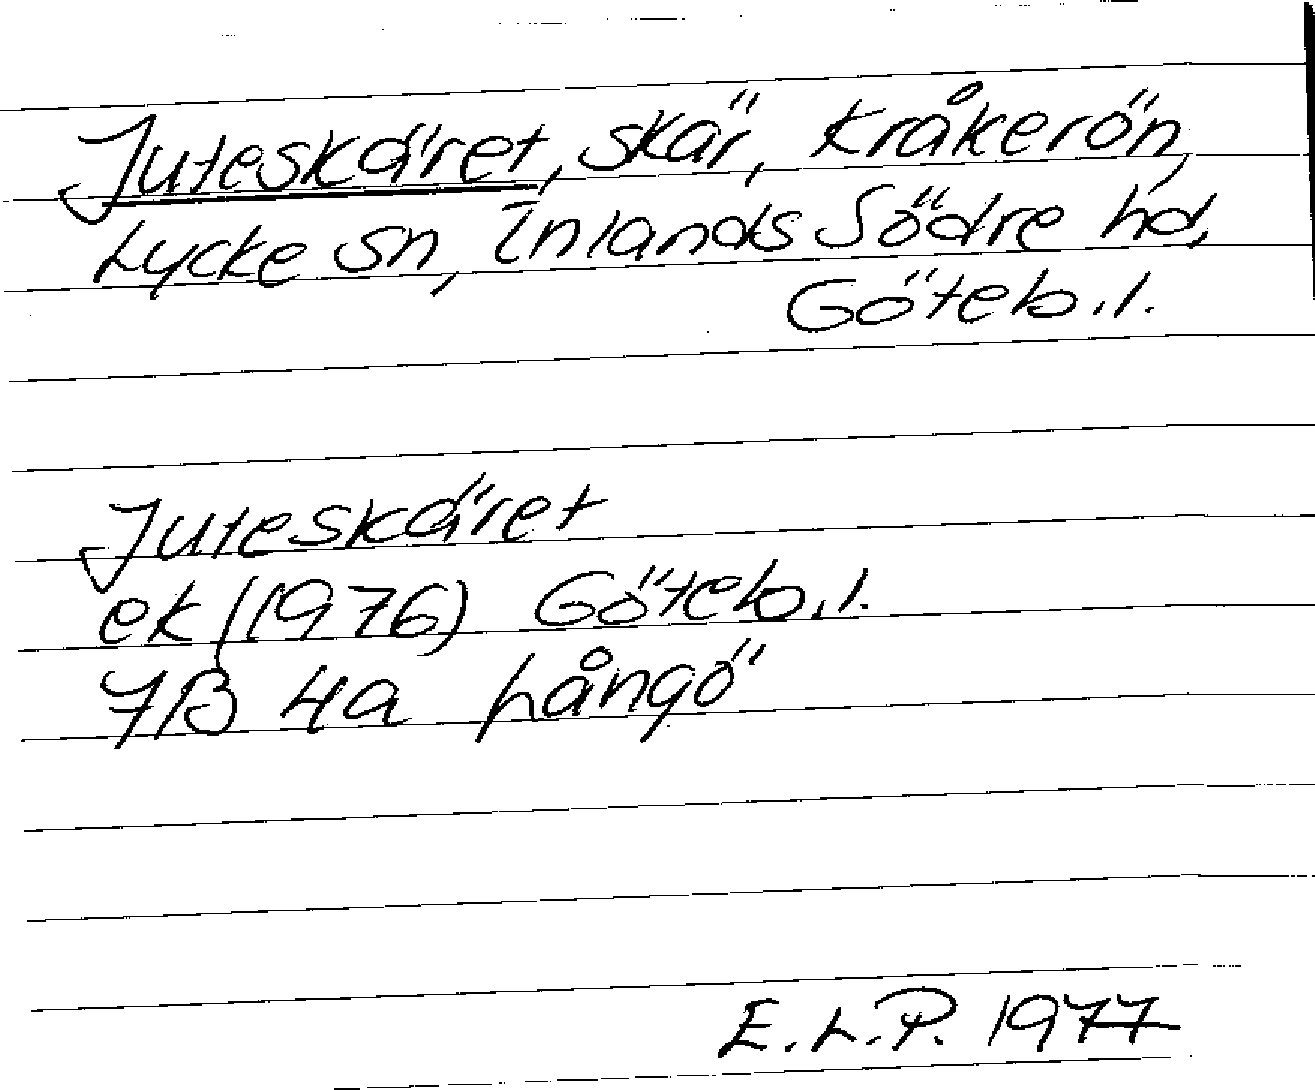 Juteskäret, skär, Kråkerön,
Lycke sn, Inlands Södre hd,
Göteb. l.
Juteskäret
ek (1976) Göteb. l.
7B 4a Långö
E. L. P. 1977